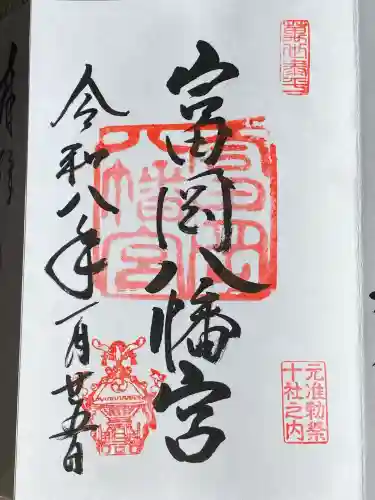 萬世泰平
富岡八幡宮
富岡八幡宮
元准勅祭
十社之内
令和八年一月廿五日